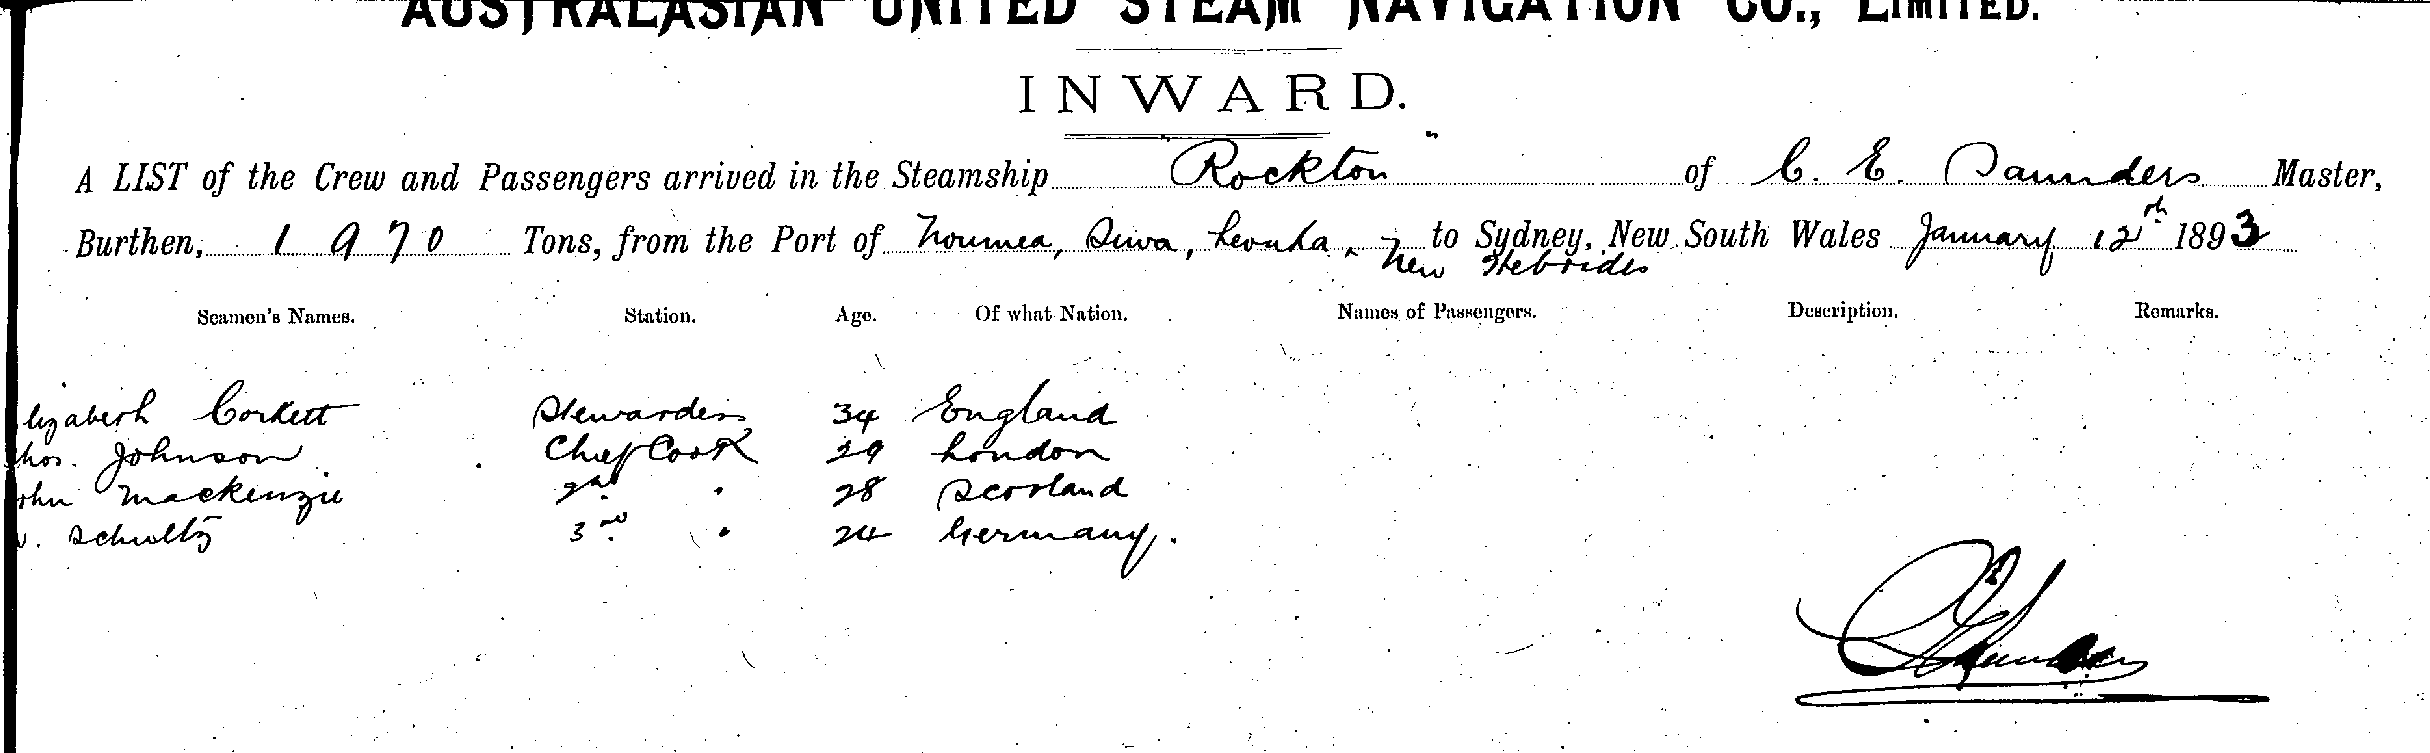 AUSTRALASIAN UNITED STEAM NAVIGATION CO., LIMITED.
INWARD.
A LIST of the Crew and Passengers arrived in the Steamship Rockton" of C. E. Saunders Master,
Burthen, 1970 Tons, from the Port of Noumea, Suva, Levuka, to Sydney, New South Wales January 12th 1893
New Hebrides
Seamen's Names. Station. Age. Of what Nation. Names of Passengers. Description. Remarks.
lizabeth Corkett Stewardess 34 England
hos. Johnson Chief Cook 29 London
ohn Mackenzie 2nd " 28 Scotland
Schultz 3rd " 24 Germany.
CESaunders